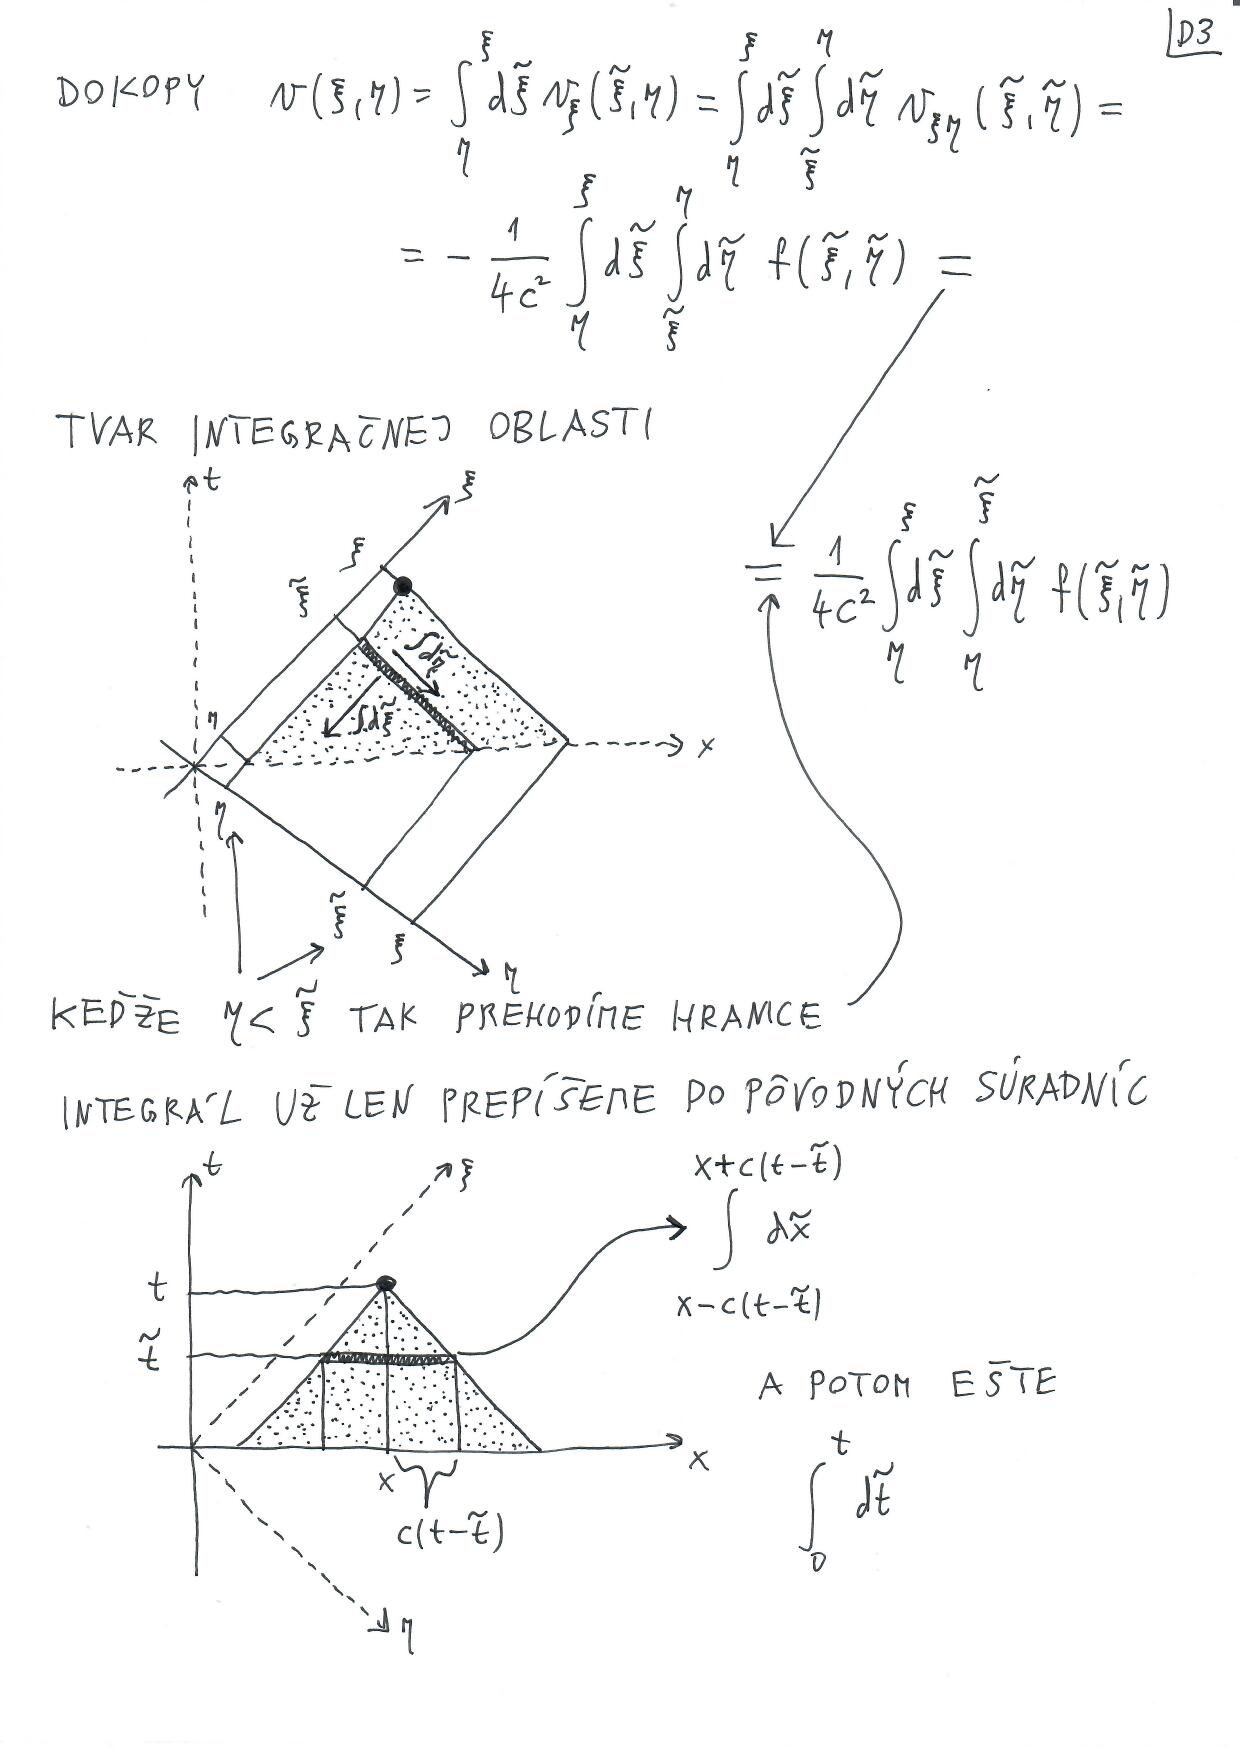 D3
DOKOPY v(ξ,η) = ∫_η^ξ dξ̃ v_ξ(ξ̃,η) = ∫_η^ξ dξ̃ ∫_ξ̃^η dη̃ v_ξη(ξ̃,η̃) =
= - 1/4c² ∫_η^ξ dξ̃ ∫_ξ̃^η dη̃ f(ξ̃,η̃) =
TVAR INTEGRAČNEJ OBLASTI
t
ξ
ξ
ξ̃
= 1/4c² ∫_η^ξ dξ̃ ∫_η^ξ̃ dη̃ f(ξ̃,η̃)
∫dη̃
∫dξ̃
η
x
η
ξ̃
ξ
η
KEĎŽE η < ξ̃ TAK PREHODÍME HRANICE
INTEGRÁL UŽ LEN PREPÍŠEME DO PÔVODNÝCH SÚRADNÍC
t
ξ
∫_{x-c(t-t̃)}^{x+c(t-t̃)} dx̃
t
t̃
A POTOM EŠTE
x
x
c(t-t̃)
∫_0^t dt̃
η